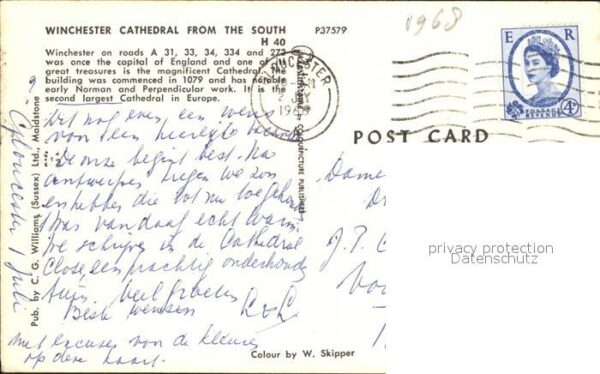 WINCHESTER CATHEDRAL FROM THE SOUTH
P37579
H 40
Winchester on roads A 31, 33, 34, 334 and 272
was once the capital of England and one of
great treasures is the magnificent Cathedral. The
building was commenced in 1079 and has notable
early Norman and Perpendicular work. It is the
second largest Cathedral in Europe.
1968
E R
POSTAGE
REVENUE
4D
POST CARD
Pub. by C. G. Williams (Sussex) Ltd., Maidstone
Gloucester 1 Juli
Dit nog even, een wens
voor een
De onze begint best. Na
antwerpen kregen we zon
en hebben die tot nu toe gehad
Was vandaag echt warm
We schrijven in de Cathedral
Close, een prachtig onderhouden
tuin. Veel groeten
Beste wensen
L & L
Met excuses van de kleuren
op deze kaart.
Dame
J.P.
Colour by W. Skipper
privacy protection
Datenschutz